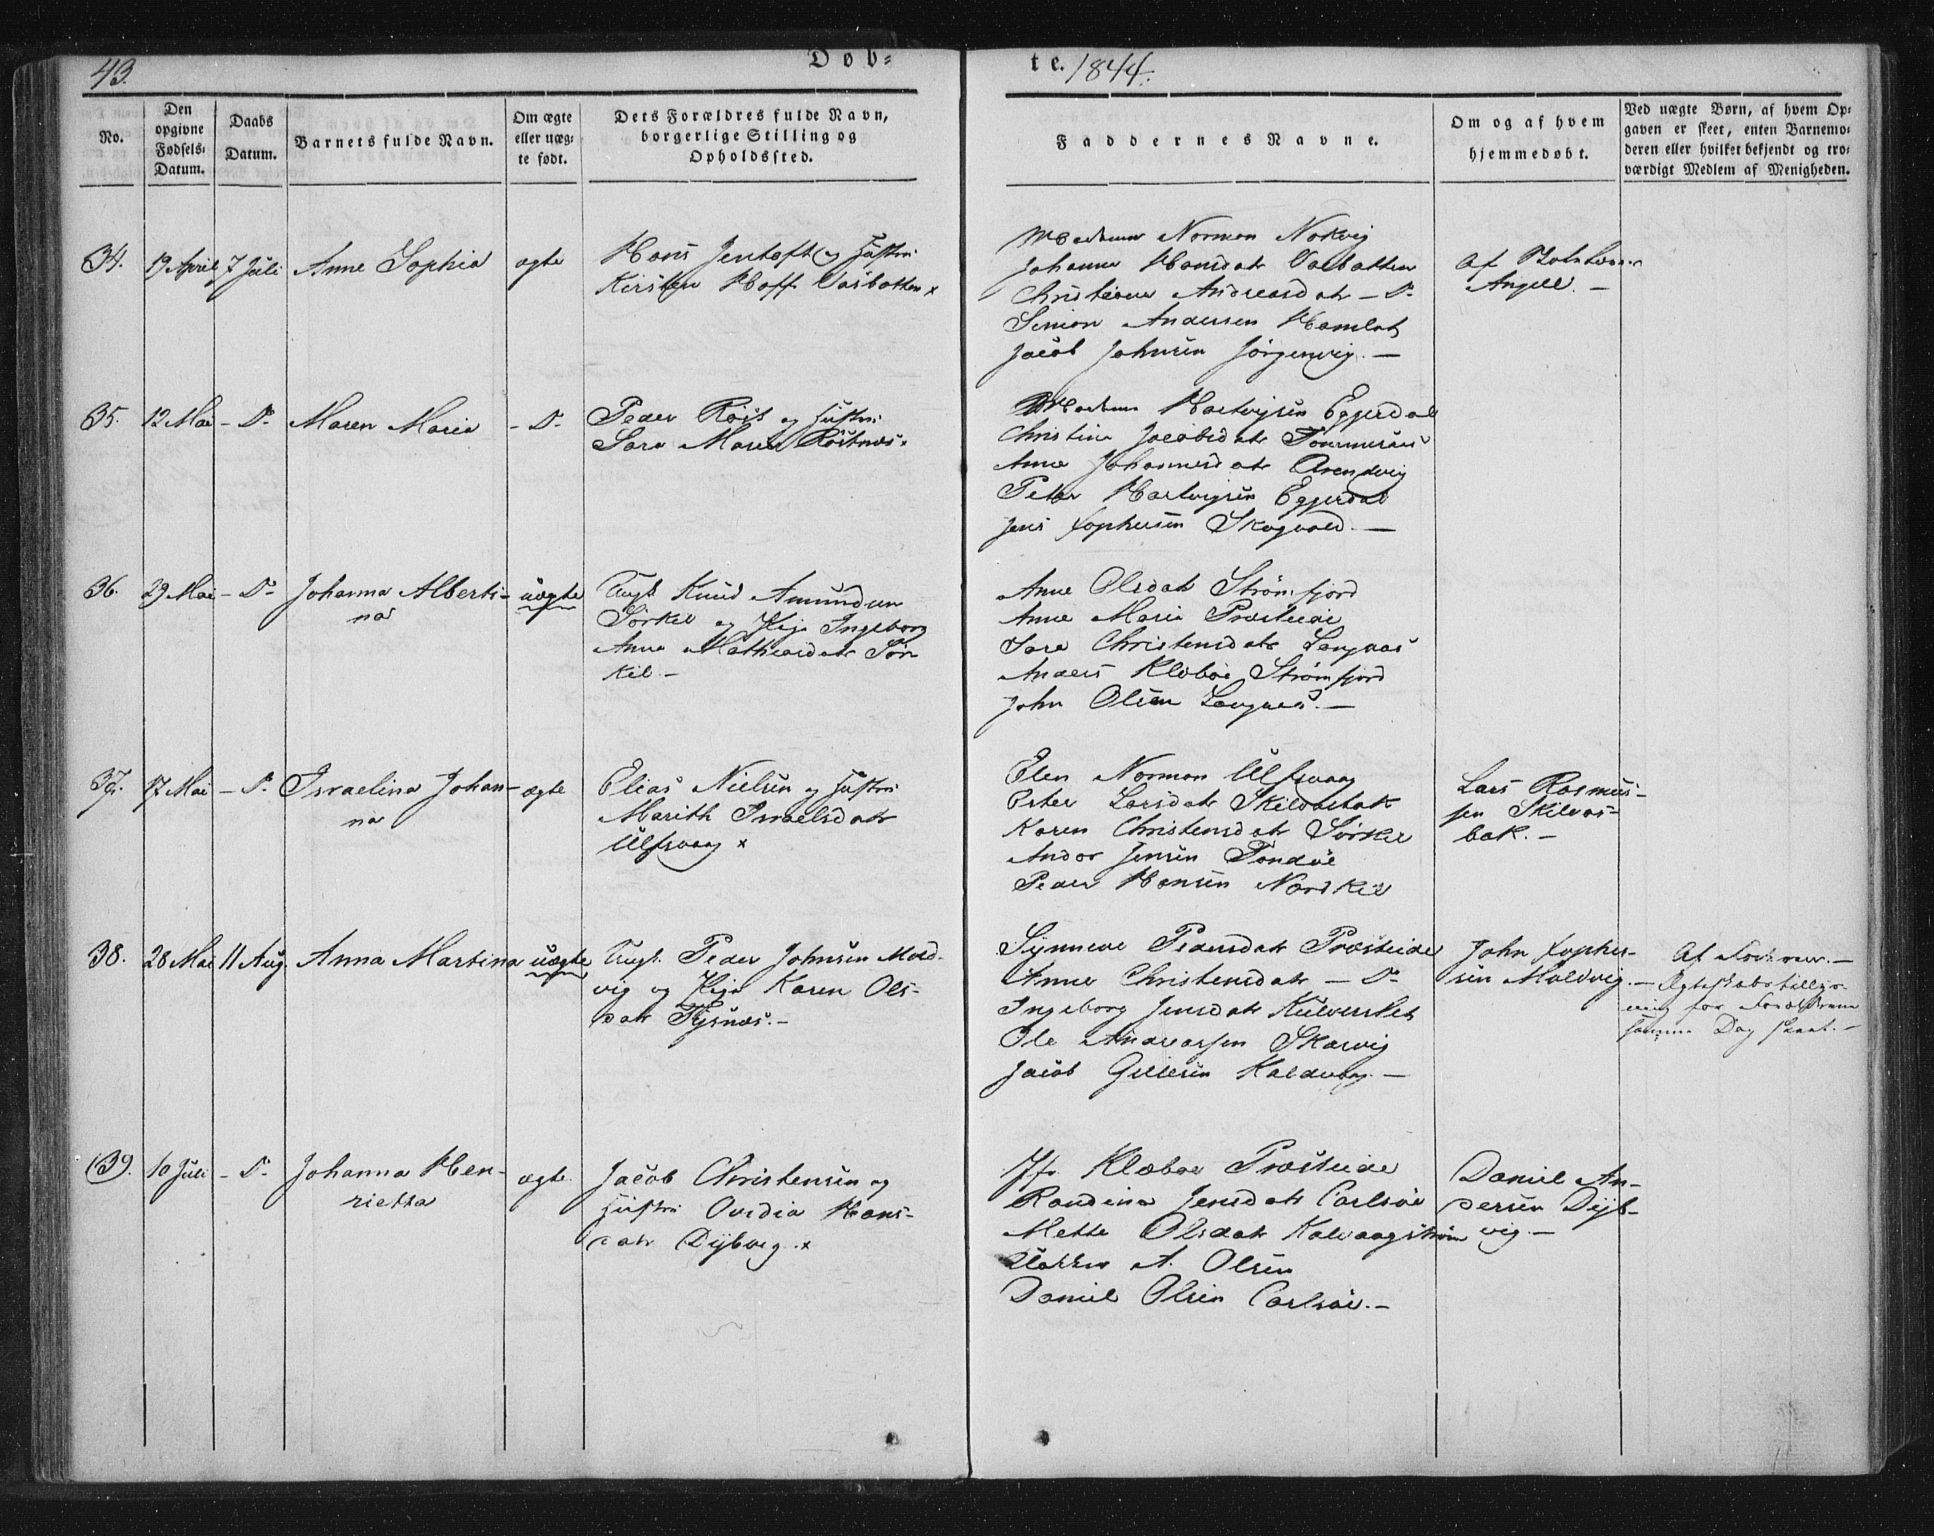 43.
Døb-
te. 1844.
No.
Den opgivne Fødsels-Datum.
Daabs Datum.
Barnets fulde Navn.
Om ægte eller uægte født.
Dets Forældres fulde Navn, borgerlige Stilling og Opholdssted.
Faddernes Navne.
Om og af hvem hjemmedøbt.
Ved uægte Børn, af hvem Op-
gaven er skeet, enten Barnemo-
deren eller hvilket bekjendt og tro-
værdigt Medlem af Menigheden.
34. 19 April 7 Juli Anne Sophia ægte
Hans Jentoft og Hustru
Kirsten Hoff
Madame Norman Nokvig
Johanna Hansdatr
Andreasdatr — Do
Simon Andersen Hamlot
Jacob Johnsen Jörgenvig. —
Af
Angell. —
35. 12 Mai - Do Maren Maria - Do
Peder Röst og Hustru
Sara Maria Röstnæs.
Madam Hartvigsen Eggerdal
Christina Jacobsdatr Tommeraas
Anne Johannesdatr
Peter Hartvigsen Eggerdal
Jens Zophusen Skogvold. —
36. 29 Mai - Do Johanna Alberti-
na
uægte
Ungk. Knud Amundsen
Sörkil og Pige Ingeborg
Anna Mathiasdatr Sör-
kil. —
Anne Olsdatr Strömfjord
Anne Maria Præsteide
Sara Christensdatr Langnæs
Anders Klæboe Strömfjord
John Olsen Langnæs. —
37. 17 Mai - Do Israelina Johan-
na
ægte
Elias Nielsen og Hustru
Marith Israelsdatr
Ulfsvaag x
Elen Norman Ulfsvaag
Ester Larsdatr Skilvasbak
Karen Christensdatr Sörkil
Andor Jensen Tondöe
Peder Hansen Nordkil
Lars Rasmus-
sen Skilvas-
bak. —
38. 28 Mai 11 Aug. Anna Martina uægte
Ungk. Peder Johnsen Mold-
vig og Pige Karen Ols-
datr
Synneve Pedersdatr Præsteide
Anne Christensdatr — Do
Ingeborg Jensdatr
Ole Andreassen Skarvig
Jacob Kaldvaag. —
John Zophus-
sen Moldvig. —
Af
for Forældrene
samme Dag skeet. —
39. 10 Juli - Do Johanna Hen-
rietta
ægte
Jacob Christensen og
Hustru Ovidia Hans-
datr Dybvig. x
Jfr. Klæboe Præsteide
Randina Jensdatr Carlsöe
Mette Olsdatr Kalvaagström
A. Olsen
Daniel Olsen Carlsöe. —
Daniel An-
dersen Dyb-
vig. —